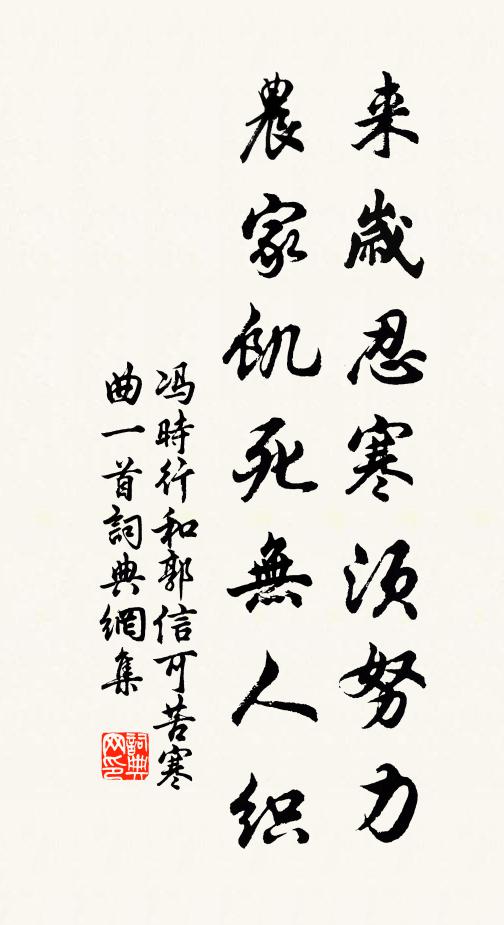 来歲忍寒須努力
農家飢死無人织
冯時行和郭信可苦寒
曲一首詞典網集
詞典网印